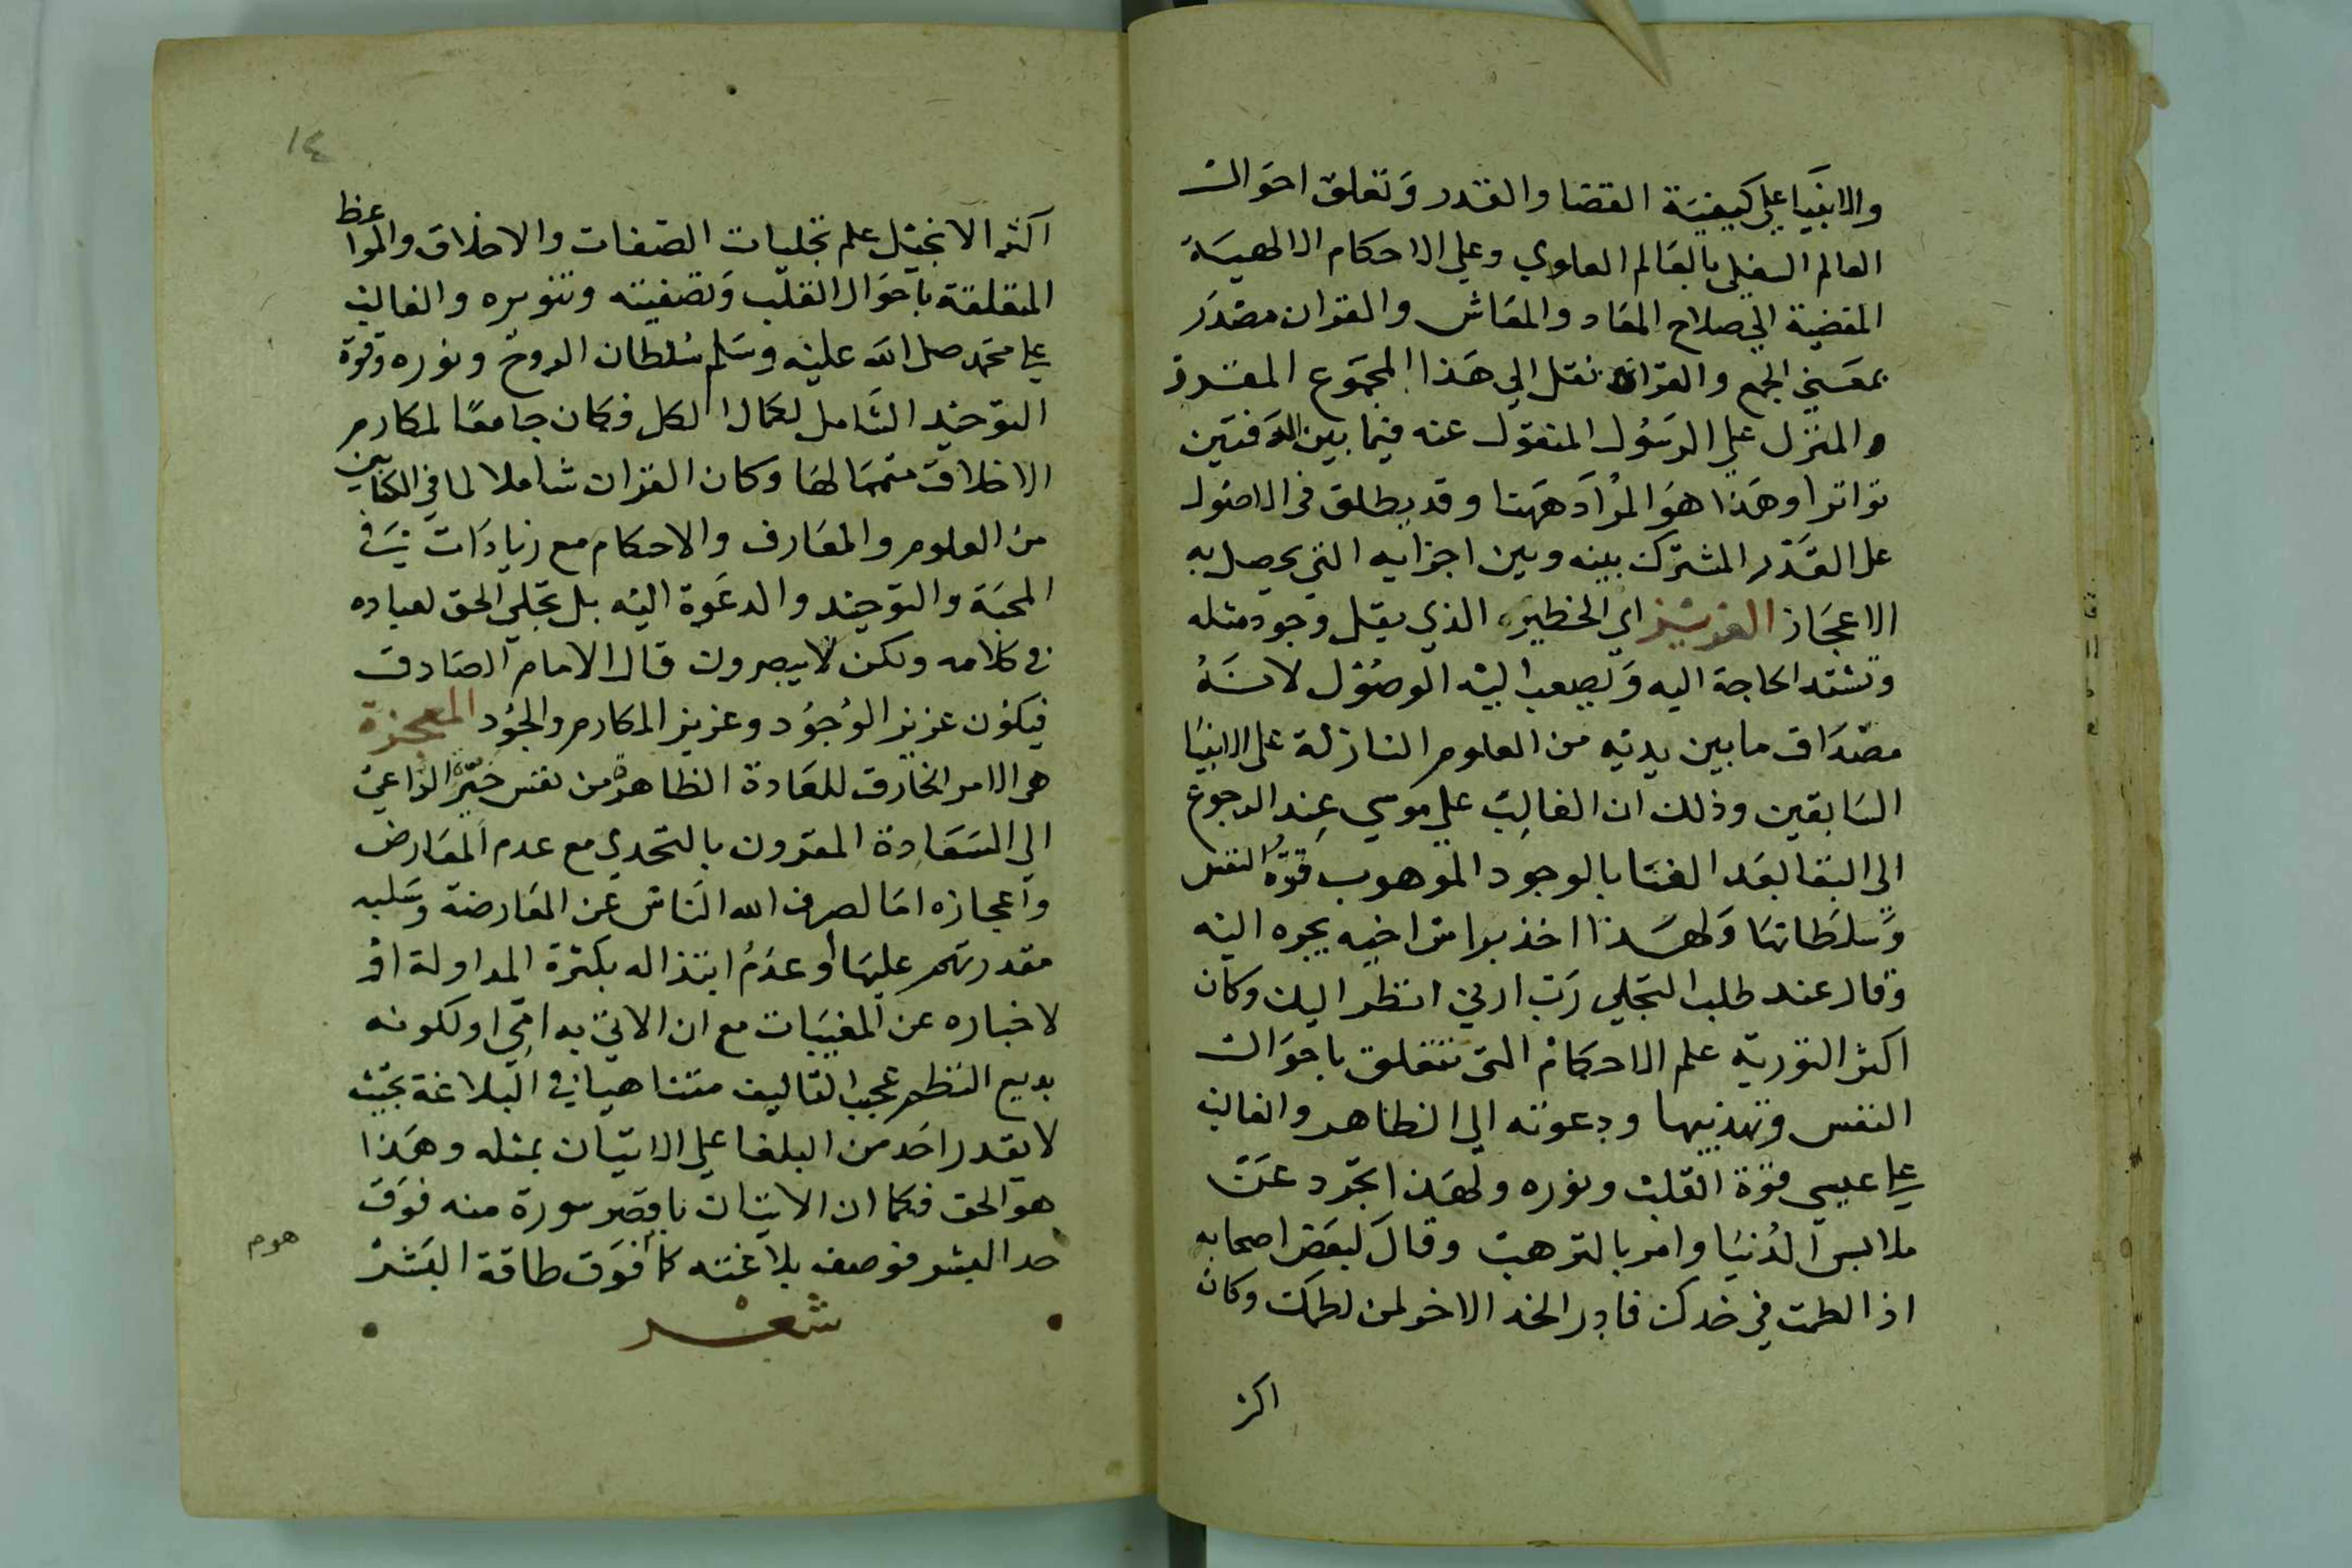 والانبيا علي كيفية القضا والقدر وتعلق احوال
العالم السفلي بالعالم العلوي وعلي الاحكام الالهية
المفضية الي صلاح المعاد والمعاش والقران مصدر
بمعني الجمع والقراة نقل الي هذا المجموع المقدر
والمنزل علي الرسول المنقول عنه فيما بين الدفتين
تواترا وهذا هو المراد ههنا وقد يطلق في الاصول
على القدر المشترك بينه وبين اجزايه التي يحصل به
الاعجاز العزيز اي الخطير الذي يقل وجود مثله
وتشتد الحاجة اليه ويصعب اليه الوصول لانه
مصداق ما بين يديه من العلوم النازلة على الانبيا
السابقين وذلك ان الغالب علي موسي عند الرجوع
الي البقا بعد الفنا بالوجود الموهوب قوة النفس
وسلطانها ولهذا اخذ براس اخيه يجره اليه
وقال عند طلب التجلي رب ارني انظر اليك وكان
اكثر التورية علم الاحكام التي تتعلق باحوال
النفس وتهذيبها ودعوته الي الظاهر والغالب
علي عيسي قوة القلب ونوره ولهذا تجرد عن
ملابس الدنيا وامر بالترهب وقال لبعض اصحابه
اذا لطمت في خدك فادر الخد الاخر لمن لطمك وكان
اكثر
١٤
اكثر الانجيل علم تجليات الصفات والاخلاق والمواعظ
المتعلقة باحوال القلب وتصفيته وتنويره والغالب
علي محمد صلى الله عليه وسلم سلطان الروح ونوره وقوة
التوحيد الشامل لكمال الكل فكان جامعا لمكارم
الاخلاق متمما لها وكان القران شاملا لما في الكتابين
من العلوم والمعارف والاحكام مع زيادات في
المحبة والتوحيد والدعوة اليه بل تجلي الحق لعباده
في كلامه ولكن لا يبصرون قال الامام الصادق
فيكون عزيز الوجود وعزيز المكارم والجود المعجزة
هي الامر الخارق للعادة الظاهرة من نفس خيرة الداعي
الي السعادة المقرون بالتحدي مع عدم المعارض
واعجازه اما لصرف الله الناس عن المعارضة وسلبه
مقدرتهم عليها او عدم ابتذاله بكثرة المداولة او
لاخباره عن المغيبات مع ان الاتي به امي او لكونه
بديع النظم عجيب التاليف متناهيا في البلاغة بحيث
لا يقدر احد من البلغا علي الاتيان بمثله وهذا
هو الحق فكما ان الاتيان باقصر سورة منه فوق
حد البشر فوصف بلاغته كما فوق طاقة البشر
شعر